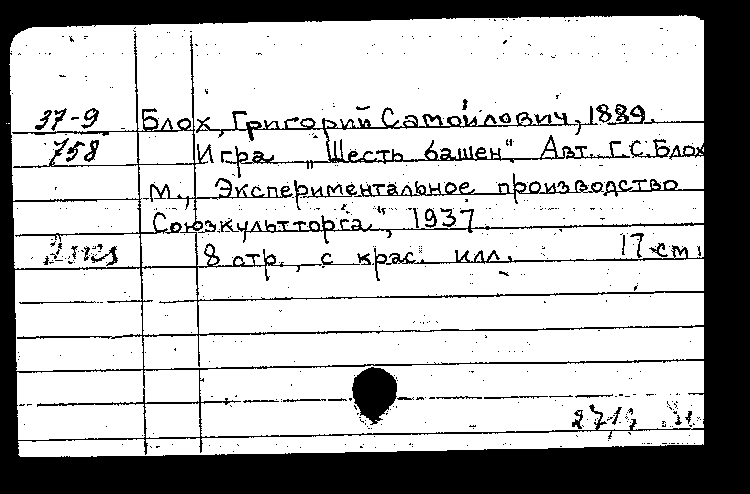 37-9 Блох, Григорий Самойлович, 1889.
758 Игра „Шесть башен". Авт. Г.С. Блох
М., Экспериментальное производство
Союзкультторга", 1937.
2 экз 8 стр., с крас. илл. 17 см.